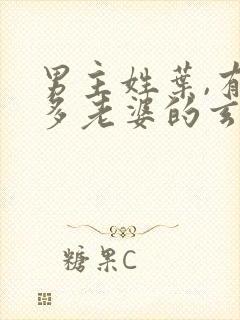 男主姓葉,有
多老婆的玄
糖果C